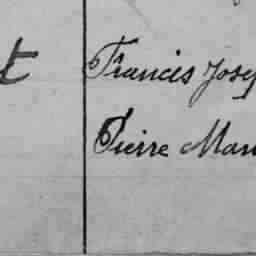 t Francis Josep
Pierre Mar